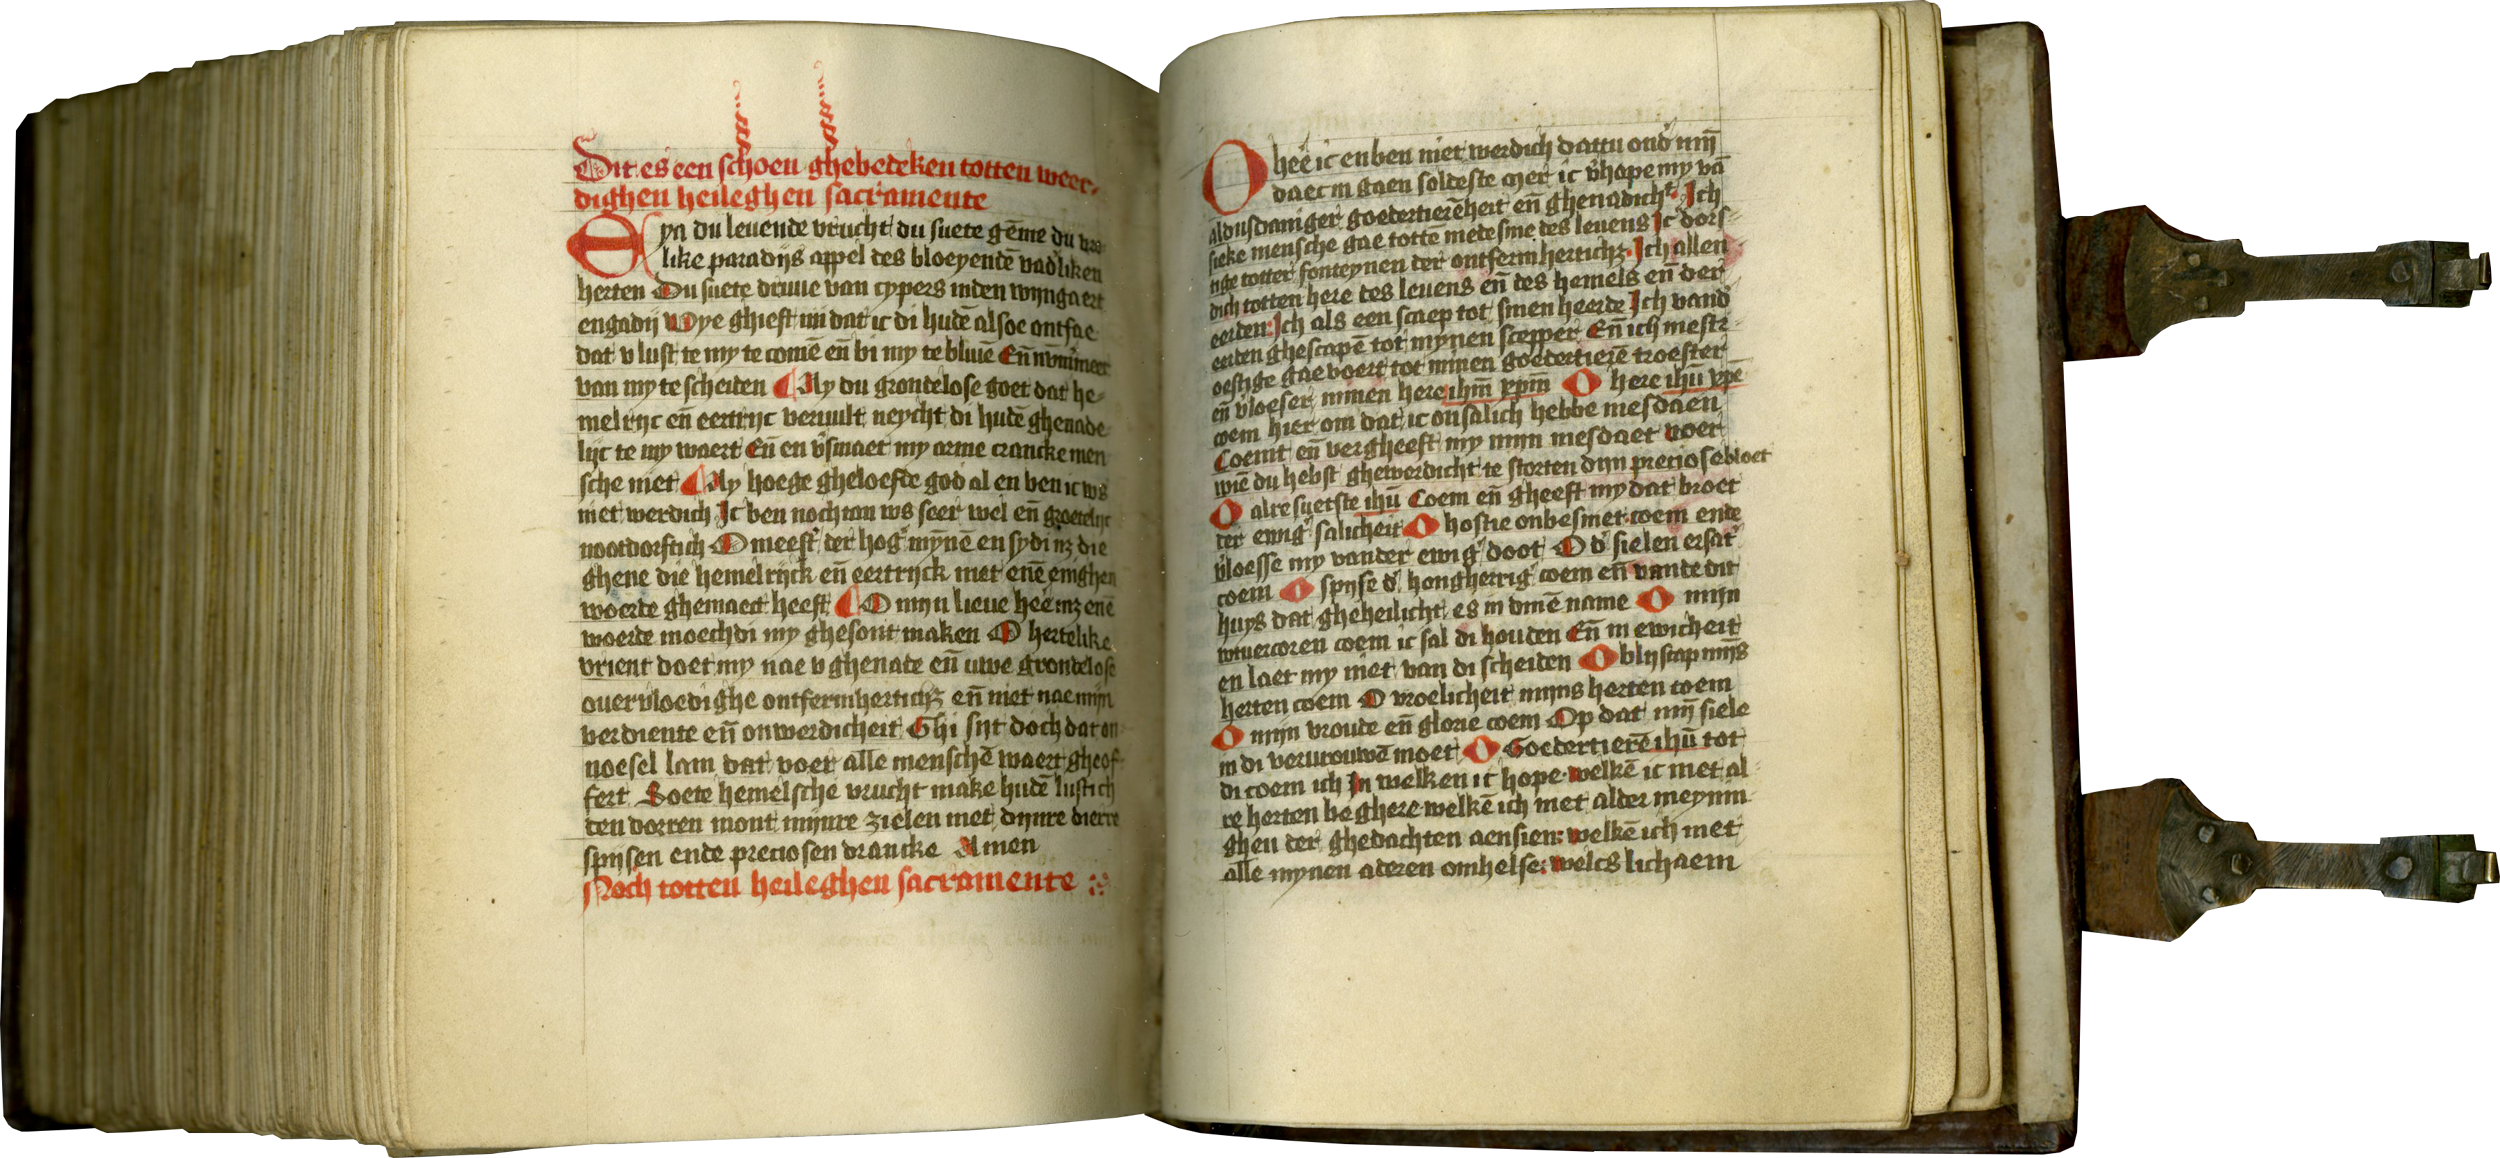 Dit es een schoen ghebedeken totten weer-
dighen heileghen sacramente
Eya du leuende vrucht du suete gēme du vro
like paradijs appel des bloeyendē vad'liken
herten Du suete druue van cypers inden wijngaert
engadij Wye ghieft mi dat ic di hudē alsoe ontfae
dat v lust te my te comē en̄ bi my te bliuē En̄ nūmmeer
van my te scheiden Ay du grondelose goet dat he-
melrijc en̄ eertrijc veruult neycht di hudē ghenade
lijc te my waert En̄ en v'smaet my arme crancke men
sche niet Ay hoege gheloefde god al en ben ic ws
niet werdich Ic ben nochtan ws seer wel en̄ groetelijc
nootdorftich O meest' der hog' mȳnē en sydi nz die
ghene die hemelrijck en̄ eertrijck met enē enighen
woerde ghemaect heeft O mijn lieue heē mz enē
woerde moechdi my ghesont maken O hertelike
vrient doet my nae v ghenade en̄ uwe grondelose
oueruloedighe ontfermherticħz en̄ niet nae mijn
verdiente en̄ onwerdicheit Ghi sijt doch dat on
noesel lam dat voer alle menschē waert gheof
fert Soete hemelsche vrucht make hudē lustich
den dorren mont mijnre zielen met dijnre dierre
spijsen ende preciosen drancke Amen
Noch totten heileghen sacramente
O heē ic en ben niet werdich dattu ond' mīj
daec in gaen soldeste Mer ic v'hape my vā
aldusdaniger goedertierēheit en̄ ghenadich' Ich
sieke mensche gae tottē medesine des leuens Ic dors-
tige totter fonteynen der ontfermherticħz Ich allen
dich totten here des leuens en̄ des hemels en̄ der
eerden: Ich als een scaep tot sinen heerde Ich vand'
eerden ghescapē tot mynen scepper En̄ ich mestr-
oestige gae voert tot minen goedertierē troester
en̄ v'loeser minen here ihm̄ xpm̄ O here ihū xpē
coem hier om dat ic onsalich hebbe mesdaen
Coemt en̄ vergheeft my mijn mesdaet voer
wiē du hebst ghewerdicht te storten dijn preciose bloet
O alre suetste ihū Coem en̄ gheeft my dat broet
der ewig' salicheit O hostie onbesmet coem ende
v'loesse my vander ewig' doot O d' sielen ersat'
coem O spijse d' hongherrig' coem en̄ vande dit
huys dat gheheilicht es in dinē name O mijn
wtuercoren coem ic sal di houden En̄ in ewicheit
en laet my niet van di scheiden O blijscap mijs
herten coem O vroelicheit mijns herten coem
O mijn vroude en̄ glorie coem Op dat mīj siele
in di vervrouwē moet O Goedertierē ihū tot
di coem ich In welken ic hope welkē ic met al-
re herten beghere welkē ich met alder meynin
ghen der ghedachten aensien: welkē ich met
alle mynen aderen omhelse: welcs lichaem